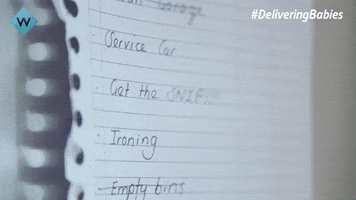 W
#DeliveringBabies
Garage
· Service Car
· Get the
· Ironing
· Empty bins